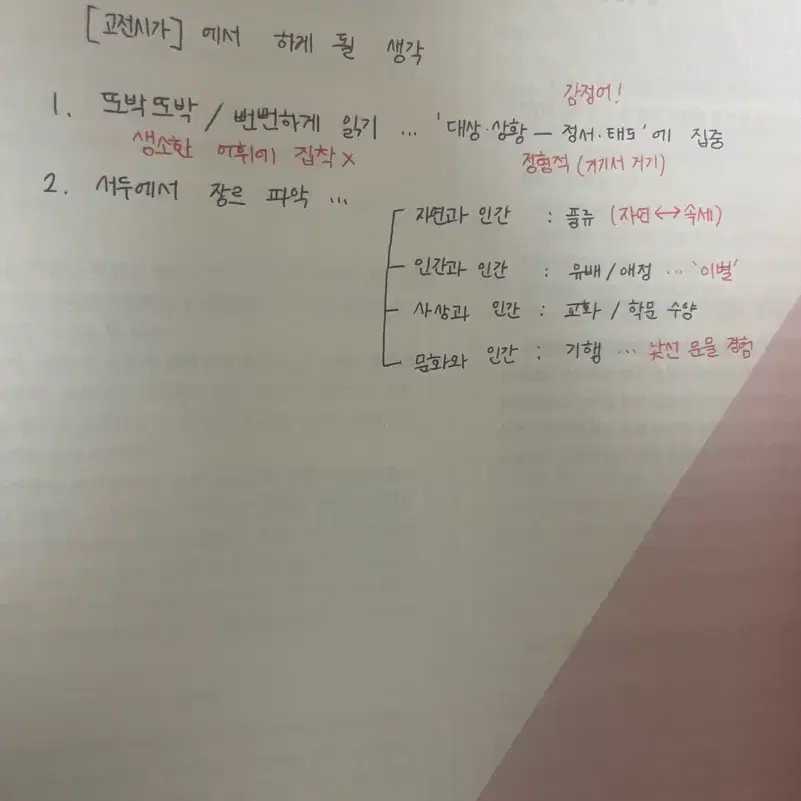 [고전시가] 에서 하게 될 생각
감정어!
1. 또박또박 / 뻔뻔하게 읽기 … '대상·상황 — 정서·태도' 에 집중
생소한 어휘에 집착 X
정형적 (거기서 거기)
2. 서두에서 장르 파악 …
자연과 인간 : 풍류 (자연↔속세)
인간과 인간 : 유배 / 애정 … '이별'
사상과 인간 : 교화 / 학문 수양
문화와 인간 : 기행 … 낯선 문물 경험